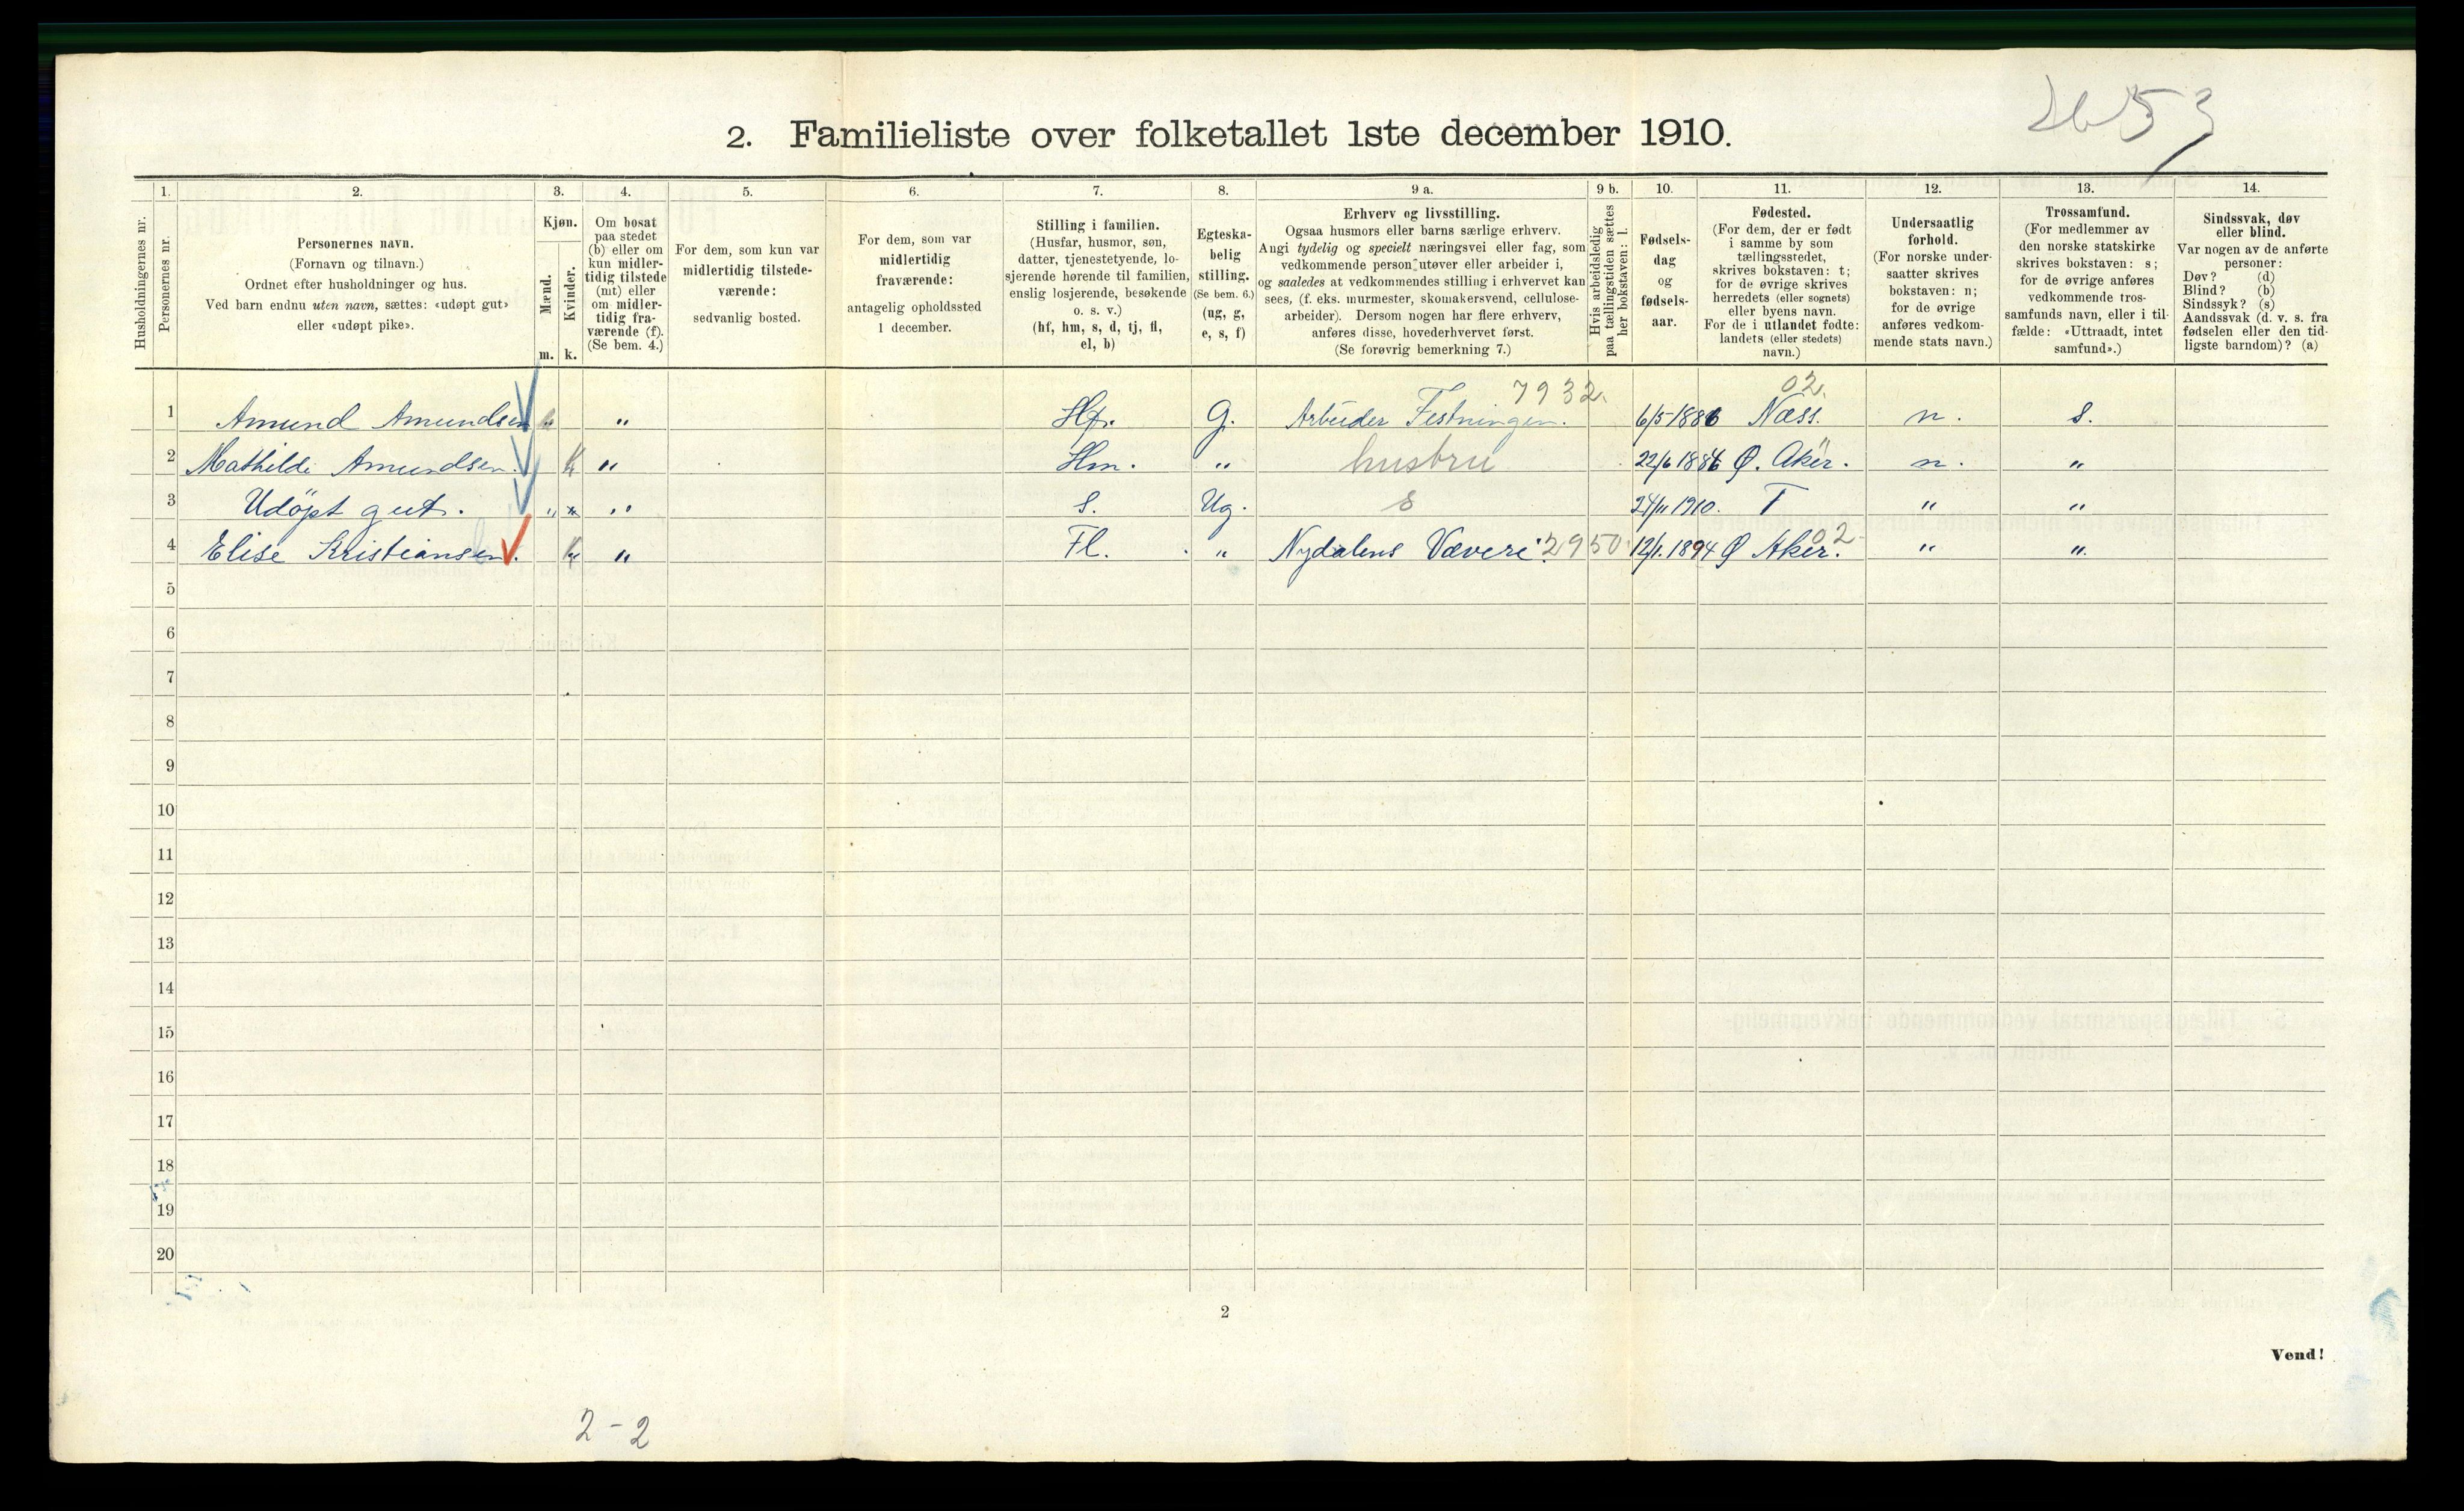 2. Familieliste over folketallet 1ste december 1910.
Husholdningernes nr.
1.
Personernes nr.
2.
Personernes navn.
(Fornavn og tilnavn.)
Ordnet efter husholdninger og hus.
Ved barn endnu uten navn, sættes: «udøpt gut»
eller «udøpt pike».
3.
Kjøn.
Mænd.
Kvinder.
m. k.
4.
Om bosat
paa stedet
(b) eller om
kun midler-
tidig tilstede
(mt) eller
om midler-
tidig fra-
værende (f).
(Se bem. 4.)
5.
For dem, som kun var
midlertidig tilstede-
værende:
sedvanlig bosted.
6.
For dem, som var
midlertidig
fraværende:
antagelig opholdssted
1 december.
7.
Stilling i familien.
(Husfar, husmor, søn,
datter, tjenestetyende, lo-
sjerende hørende til familien,
enslig losjerende, besøkende
o. s. v.)
(hf, hm, s, d, tj, fl,
el, b)
8.
Egteska-
belig
stilling.
(Se bem. 6.)
(ug, g,
e, s, f)
9 a.
Erhverv og livsstilling.
Ogsaa husmors eller barns særlige erhverv.
Angi tydelig og specielt næringsvei eller fag, som
vedkommende person utøver eller arbeider i,
og saaledes at vedkommendes stilling i erhvervet kan
sees, (f. eks. murmester, skomakersvend, cellulose-
arbeider). Dersom nogen har flere erhverv,
anføres disse, hovederhvervet først.
(Se forøvrig bemerkning 7.)
9 b.
Hvis arbeidsledig
paa tællingstiden sættes
her bokstaven: l.
10.
Fødsels-
dag
og
fødsels-
aar.
11.
Fødested.
(For dem, der er født
i samme by som
tællingsstedet,
skrives bokstaven: t;
for de øvrige skrives
herredets (eller sognets)
eller byens navn.
For de i utlandet fødte:
landets (eller stedets)
navn.)
12.
Undersaatlig
forhold.
(For norske under-
saatter skrives
bokstaven: n;
for de øvrige
anføres vedkom-
mende stats navn.)
13.
Trossamfund.
(For medlemmer av
den norske statskirke
skrives bokstaven: s;
for de øvrige anføres
vedkommende tros-
samfunds navn, eller i til-
fælde: «Uttraadt, intet
samfund».)
14.
Sindssvak, døv
eller blind.
Var nogen av de anførte
personer:
Døv? (d)
Blind? (b)
Sindssyk? (s)
Aandssvak (d. v. s. fra
fødselen eller den tid-
ligste barndom)? (a)
7932. 02.
1 Amund Amundsen " Hf. G. Arbeider Festningen. 6/5 1886 Næss. n. s.
2 Mathilde Amundsen. k " Hm. " hustru 22/6 1886 Ø. Aker. n. "
3 Udöpt gut. " " S. Ug. s 24/11 1910. T " "
4 Elise Kristiansen. k " Fl. " Nydalens Væveri. 2950 12/1. 1894 Ø Aker. 02 " "
5
6
7
8
9
10
11
12
13
14
15
16
17
18
19
20
2
Vend!
2-2